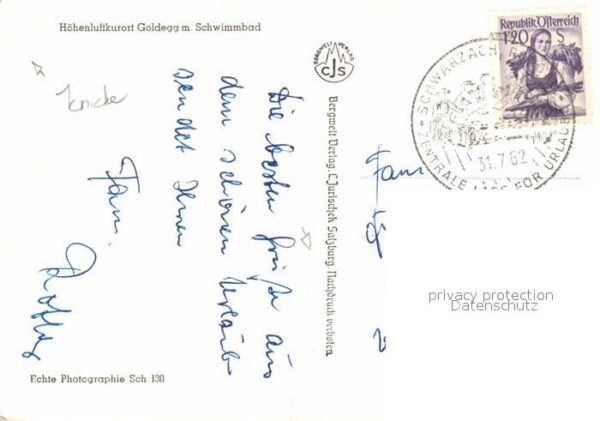 Höhenluftkurort Goldegg m. Schwimmbad
Knicke
Die besten Grüße aus
dem schönen Urlaub
sendet Ihnen
Fam.
BERGWELT VERLAG
CJS
Bergwelt Verlag, C. Jurischek Salzburg. Nachdruck verboten
Republik Österreich
1'20 S
SCHWARZACH
31.7.62
ZENTRALE FÜR URLAUB
Fam
privacy protection
Datenschutz
Echte Photographie Sch 130